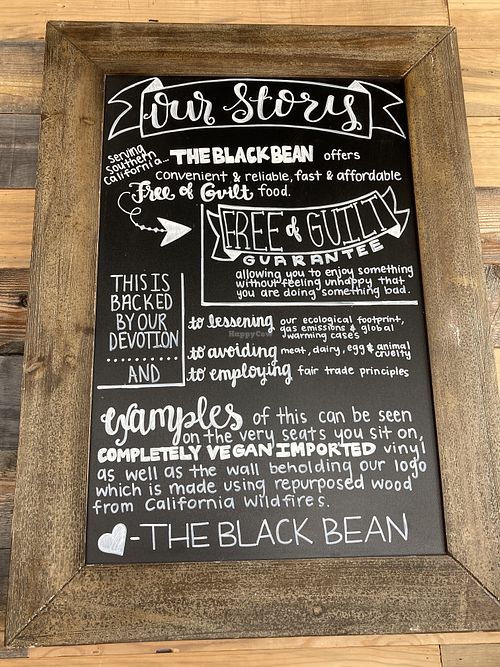 Our Story
serving
southern
California...
THE BLACK BEAN offers
convenient & reliable, fast & affordable
Free of Guilt food.
FREE of GUILT
GUARANTEE
allowing you to enjoy something
without feeling unhappy that
you are doing something bad.
THIS IS
BACKED
BY OUR
DEVOTION
AND
to lessening our ecological footprint,
gas emissions & global
warming cases
to avoiding meat, dairy, egg & animal
cruelty
to employing fair trade principles
examples of this can be seen
on the very seats you sit on,
COMPLETELY VEGAN IMPORTED vinyl
as well as the wall beholding our logo
which is made using repurposed wood
from California Wildfires.
-THE BLACK BEAN
HappyCow